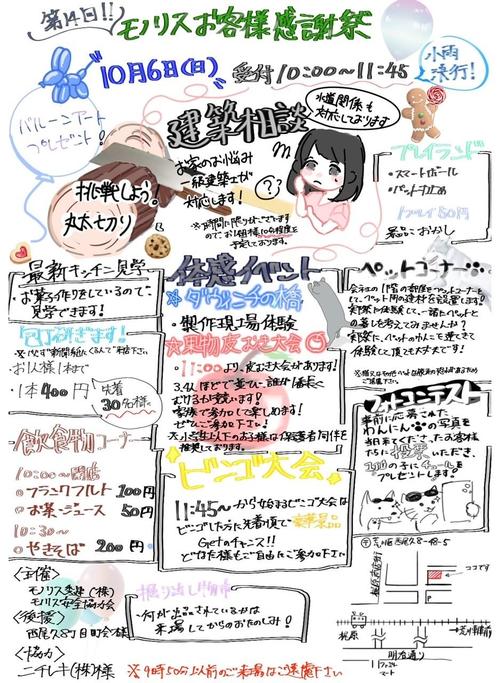 第14回!!
モノリスお客様感謝祭
10月6日(日) 受付10:00~11:45
小雨
決行!
バルーンアート
プレゼント!
建築相談
水道関係も
対応しております
お家のお悩み
一級建築士が
対応します!
※お時間に限りがございます
のでお1組様10分程度を
予定しております。
挑戦しよう!
丸太切り
プレイランド
・スマートボール
・パットゴルフ
1プレイ50円
景品:おかし
最新キッチン見学
・お菓子作りをしているので、
見学できます!
包丁研ぎます!
※必ず新聞紙にくるんで来店下さい
お1人様1本まで
・1本400円
先着
30名様
飲食物コーナー
10:00~開催
フランクフルト 100円
お茶・ジュース 50円
10:30~
やきそば 200円
体感イベント
※ダヴィンチの橋
・製作現場体験
☆果物皮むき大会
11:00より、皮むき大会があります!
3,4人ほどで並び、誰が1番長く
むけるか競います!
家族で参加して楽しめます!
ぜひご参加下さい
※小学生以下のお子様は保護者同伴を
推奨しております。
ビンゴ大会
11:45~から始まるビンゴ大会は
ビンゴした方に先着順で豪華景品
Getのチャンス!!
どなた様もご自由にご参加下さい
ペットコーナー
会社の1階の部屋をペットコーナーと
して、ペット用の建材を設置します!
実際に体験して、一緒にペットと
の暮しを考えてみませんか?
実際に、ペットのわんこを連れて
体験して頂も大丈夫です!
フォトコンテスト
事前に応募された
わんにゃんの写真を
当日来てくださったお客様
方に投票いただき、
上位の子にチュールを
プレゼントします!
〒荒川区西尾久8-48-5
ココです
梶原
明治通り
ファミリー
マート
<主催>
モノリス秀建(株)
モノリス安全協力会
<後援>
西尾久8丁目町会様
<協力>
ニチレキ(株)様
掘り出し物市
・何が出品されているかは
来場してからのおたのしみ!
※9時50分以前のご来場はご遠慮下さい